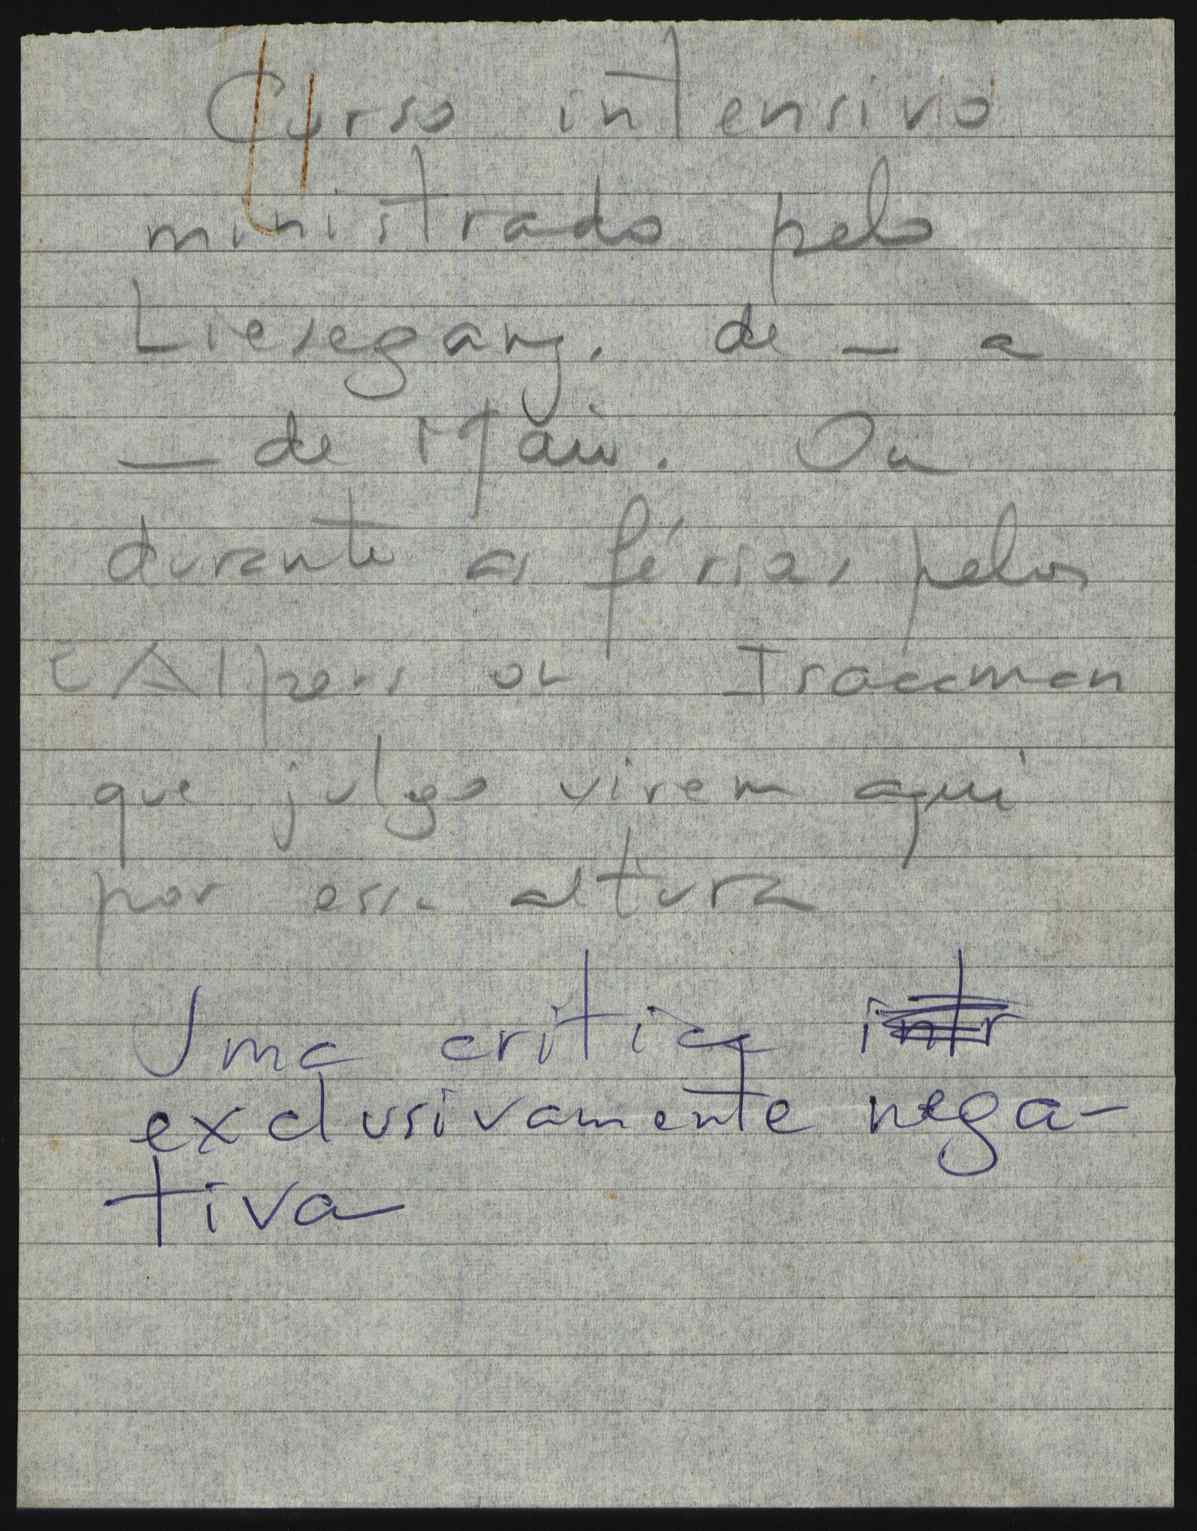 Curso intensivo
ministrado pelo
Liesegang. de _ a
_ de Maio. Ou
durante as férias pelos
Alpers ou Isaacman
que julgo virem aqui
por essa altura
Uma critica intr
exclusivamente nega-
tiva